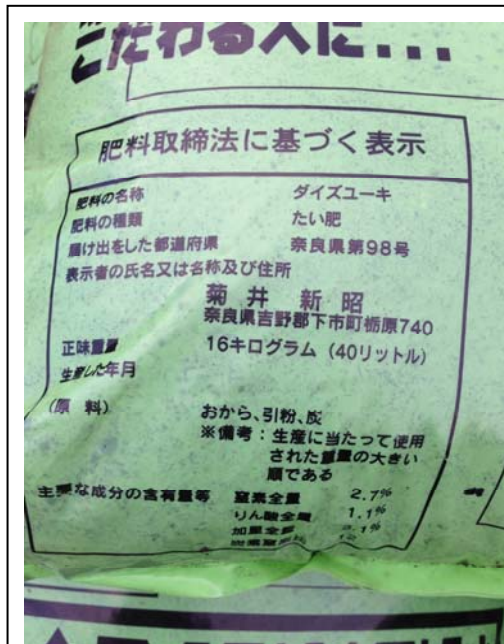 こだわる人に...
肥料取締法に基づく表示
肥料の名称 ダイズユーキ
肥料の種類 たい肥
届け出をした都道府県 奈良県第98号
表示者の氏名又は名称及び住所
菊井 新昭
奈良県吉野郡下市町栃原740
正味重量 16キログラム (40リットル)
生産した年月
(原 料)
おから、引粉、炭
※備考:生産に当たって使用
された重量の大きい
順である
主要な成分の含有量等 窒素全量 2.7%
りん酸全量 1.1%
加里全量